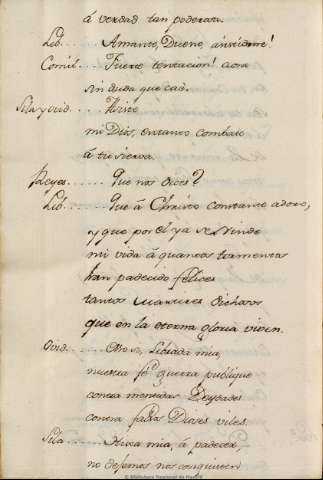 á verdad tan poderosa.
Lib..... Amante, Dueño, asísteme!
Comil.... Fuerte tentacion! aora
sin duda que cae.
Sila y ovid.... Asiste
mi Dios, en tanto combate
á tu sierva.
Reyes...... Que nos dices?
Lib...... Que á Christo constante adoro,
y que por el ya se rinde
mi vida á quantos tormentos
han padecido felices
tantos Martires dichosos
que en la eterna gloria viven.
Ovid.... Librada mia,
nuestra fe guerra publique
contra mentidas Deydades
contra falsos Dioses viles.
Sila..... mia, á padecer,
no dejemos nos
© Biblioteca Nacional de España